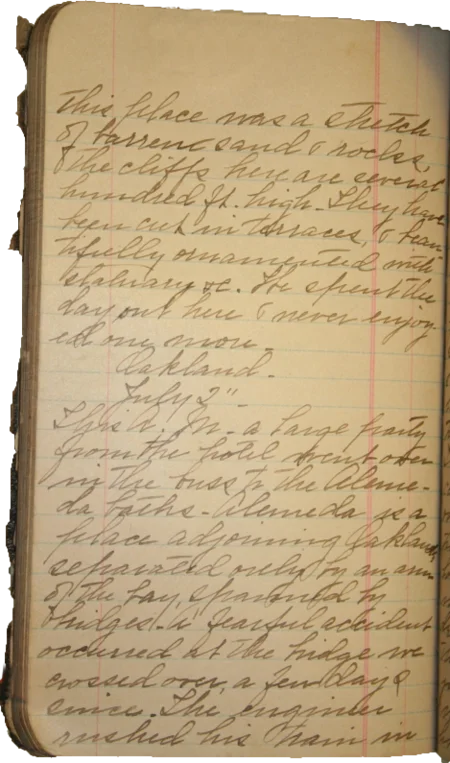 this place was a stretch
of barren sand & rocks,
& the cliffs here are several
hundred ft. high. They have
been cut in terraces, & beau-
tifully ornamented with
statuary &c. We spent the
day out here & never enjoy-
ed one more.
Oakland.
July 2"
This A. M. a large party
from the hotel went over
in the buss to the Alame-
da baths. Alameda is a
place adjoining Oakland,
separated only by an arm
of the bay, spanned by
bridges. A fearful accident
occurred at the bridge we
crossed over, a few days
since. The engineer
rushed his train in